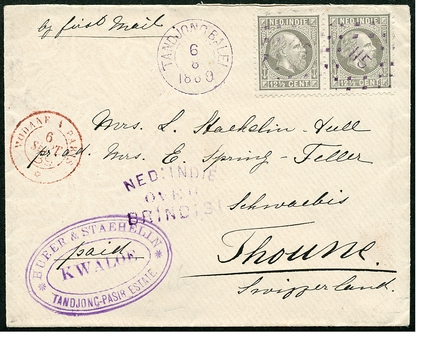 by first Mail
TANDJONGBALEI
6
8
1889
NED. INDIE NED. INDIE
12½ CENT 12½ CENT
MODANE A PARIS
6
SEPT
Mrs. L. Staehelin-
Mrs. E. Spring-Feller
NED: INDIE
OVER
BRINDISI
Schwaebis
BUEER & STAEHELIN
paid
KWALOE
TANDJONG-PASIR ESTATE
Thoune.
Switzerland.